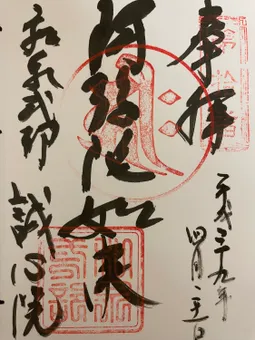 奉拝
平成二十九年
四月二十一日
阿弥陀如来
和泉式部
誠心院